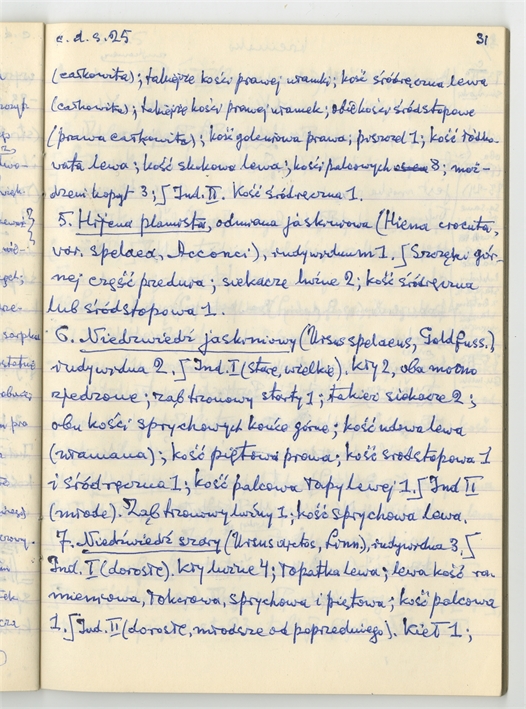 c. d. s. 25
31
(całkowita); takiejże kości prawej ułamki; kość śródręczna lewa
(całkowita); takiejże kości prawej ułamek; obie kości śródstopowe
(prawa całkowita); kość goleniowa prawa; piszczel 1; kość łódko-
wata lewa; kość skokowa lewa; kości palcowych 8; moż-
dzeni kopyt 3; ∫ Ind. II. Kość śródręczna 1.
5. Hijena plamista, odmiana jaskiniowa (Hiena crocuta,
var. spelaea, Acconci), indywiduum 1. ∫ Szczęki gór-
nej część przednia; siekacze luźne 2; kość śródręczna
lub śródstopowa 1.
6. Niedźwiedź jaskiniowy (Ursus spelaeus, Goldfuss.),
indywidua 2. ∫ Ind. I (stare, wielkie). Kły 2, oba mocno
zjedzone; ząb trzonowy starty 1; takież siekacze 2;
obu kości sprychowych końce górne; kość udowa lewa
(ułamana); kość piętowa prawa; kość śródstopowa 1
i śródręczna 1; kość palcowa łapy lewej 1. ∫ Ind II
(młode). Ząb trzonowy luźny 1; kość sprychowa lewa.
7. Niedźwiedź szary (Ursus arctos, Linn.), indywidua 3. ∫
Ind. I (dorosłe). Kły luźne 4; łopatka lewa; lewa kość ra-
mieniowa, łokciowa, sprychowa i piętowa; kość palcowa
1. ∫ Ind. II (dorosłe, młodsze od poprzedniego). Kieł 1;